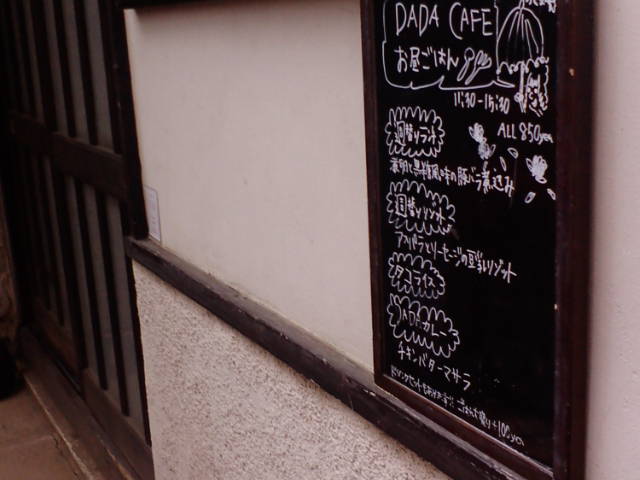 DADA CAFE
お昼ごはん
11:30-15:30
ALL 850yen
週替りランチ
黒酢風味の豚バラ煮込み
週替りリゾット
アスパラとソーセージの豆乳リゾット
タコライス
DADAカレー
チキンバターマサラ
ドリンクセット ごはん大盛り+100yen